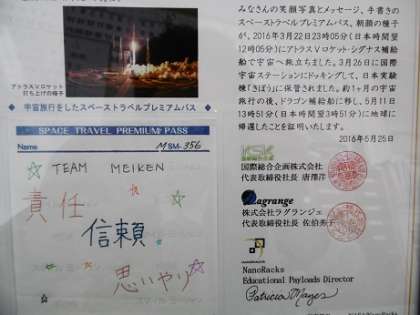 アトラスⅤロケット
打ち上げの様子
宇宙旅行をしたスペーストラベルプレミアムパス
SPACE TRAVEL PREMIUM PASS
Name MSM-356
TEAM MEIKEN
責任
信頼
思いやり
みなさんの笑顔写真とメッセージ、手書きの
スペーストラベルプレミアムパス、朝顔の種子
が、2016年3月22日23時05分(日本時間翌
12時05分)にアトラスⅤロケット・シグナス補給
船で宇宙へ旅立ちました。3月26日に国際
宇宙ステーションにドッキングして、日本実験
棟「きぼう」に保管されました。約1か月の宇宙
旅行の後、ドラゴン補給船に移し、5月11日
13時51分(日本時間翌3時51分)に地球に
帰還したことを証明いたします。
2016年5月25日
KSK
国際総合企画株式会社
代表取締役社長 唐澤洋
Lagrange
株式会社ラグランジェ
代表取締役社長 佐伯秀子
NANORACKS
NanoRacks
Educational Payloads Director
Patricia Mayes